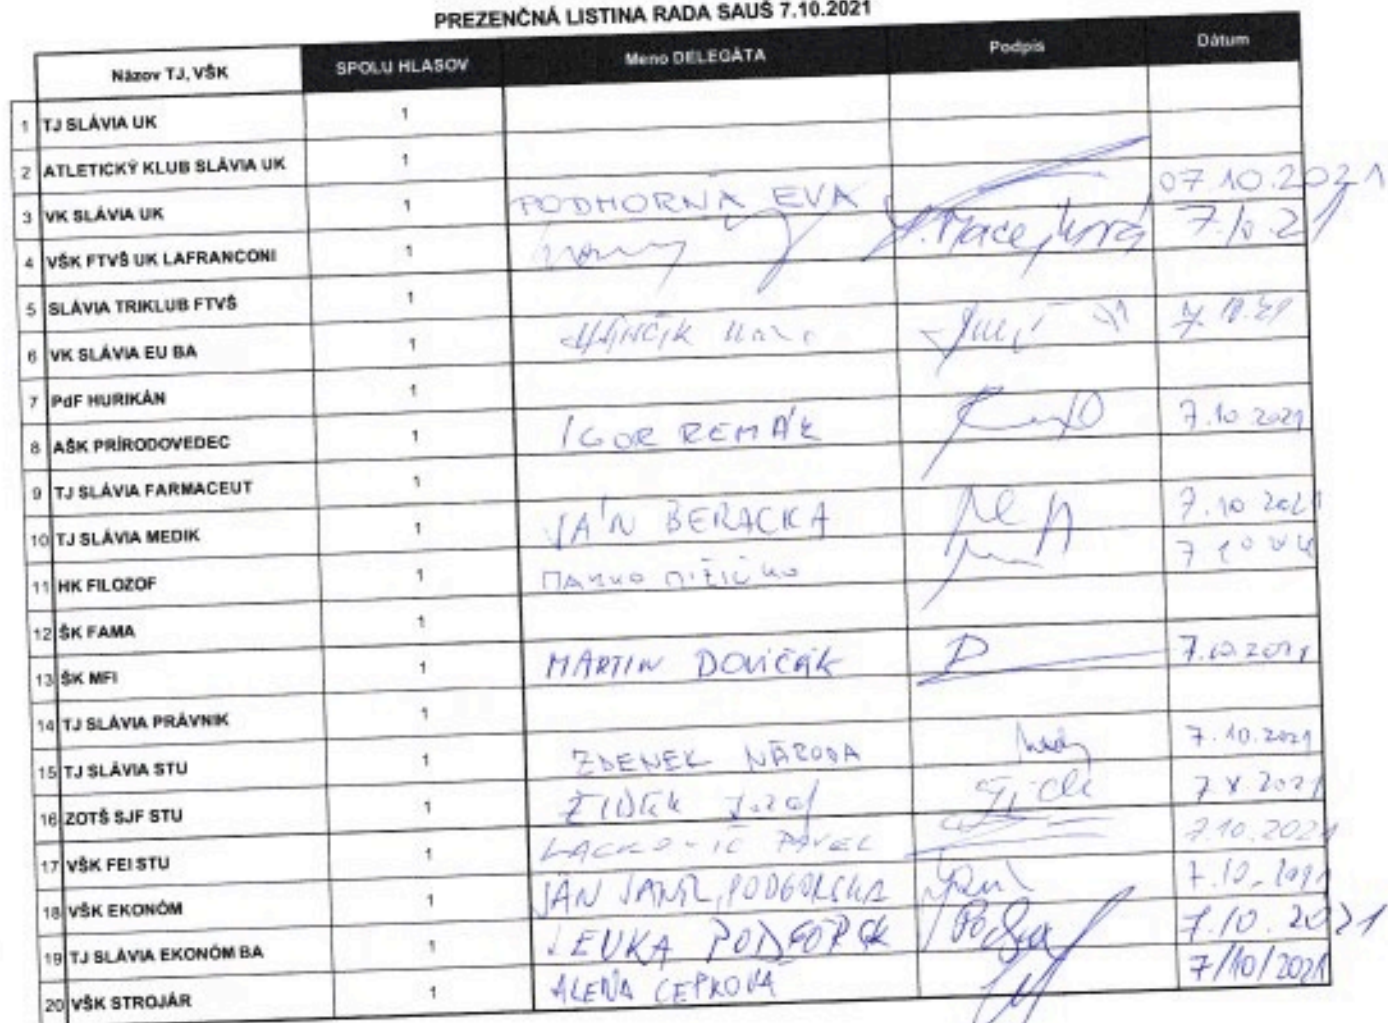 PREZENČNÁ LISTINA RADA SAUŠ 7.10.2021
Názov TJ, VŠK SPOLU HLASOV Meno DELEGÁTA Podpis Dátum
1 TJ SLÁVIA UK 1
2 ATLETICKÝ KLUB SLÁVIA UK 1
3 VK SLÁVIA UK 1 PODHORNÁ EVA 07.10.2021
4 VŠK FTVŠ UK LAFRANCONI 1 7.10.21
5 SLÁVIA TRIKLUB FTVŠ 1
6 VK SLÁVIA EU BA 1 7.10.21
7 PdF HURIKÁN 1
8 AŠK PRÍRODOVEDEC 1 IGOR REMÁK 7.10.2021
9 TJ SLÁVIA FARMACEUT 1
10 TJ SLÁVIA MEDIK 1 JÁN BERACKA 7.10.2021
11 HK FILOZOF 1
12 ŠK FAMA 1
13 ŠK MFI 1 MARTIN DOVIČÁK 7.10.2021
14 TJ SLÁVIA PRÁVNIK 1
15 TJ SLÁVIA STU 1 ZDENEK NÁRODA 7.10.2021
16 ZOTŠ SJF STU 1 7.X.2021
17 VŠK FEI STU 1 LACKOVIČ PAVEL 7.10.2021
18 VŠK EKONÓM 1 JÁN 7.10.2021
19 TJ SLÁVIA EKONÓM BA 1 7.10.2021
20 VŠK STROJÁR 1 ALENA CEPKOVÁ 7/10/2021